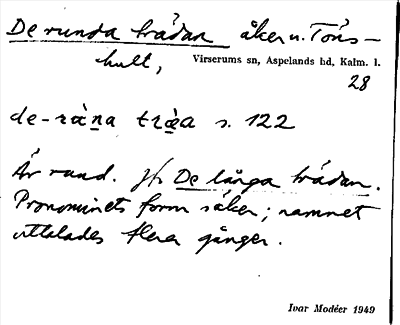 De runda trädan åker u. Töns-
hult, Virserums sn, Aspelands hd, Kalm. l.
28
de-ràṉa träa s. 122
Är rund. Jfr De långa trädan.
Pronominets form säker; namnet
uttalades flera gånger.
Ivar Modéer 1949